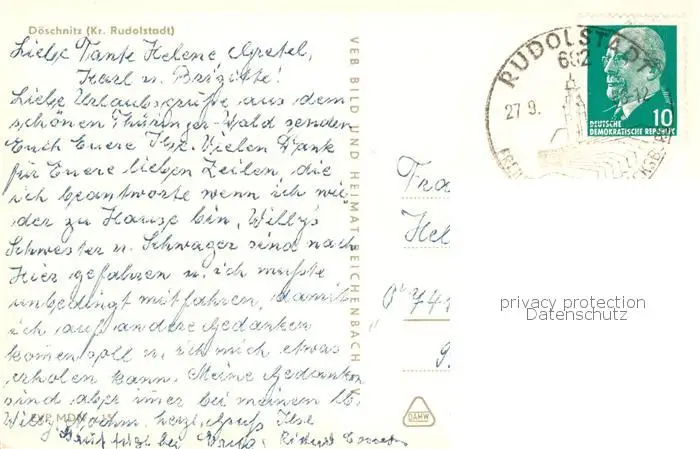 Döschnitz (Kr. Rudolstadt)
Liebe Tante Helene, Gretel,
Karl u. Brigitte!
Liebe Urlaubsgrüße aus dem
schönen Thüringer-Wald senden
Euch Euere Ilse. Vielen Dank
für Euere lieben Zeilen, die
ich beantworte wenn ich wie-
der zu Hause bin, Willy's
Schwester u. Schwager sind nach
hier gefahren u. ich mußte
unbedingt mitfahren, damit
ich auf andere Gedanken
komen soll u. ich mich etwas
erholen kann. Meine Gedanken
sind aber imer bei meinem lb.
Willy. Nochm. herzl. Gruß Ilse
Gruß fügt bei
VEB BILD UND HEIMAT REICHENBACH
RUDOLSTADT
692
27.9.
10
DEUTSCHE
DEMOKRATISCHE REPUBLIK
Fra
Hel
privacy protection
Datenschutz
DAHW